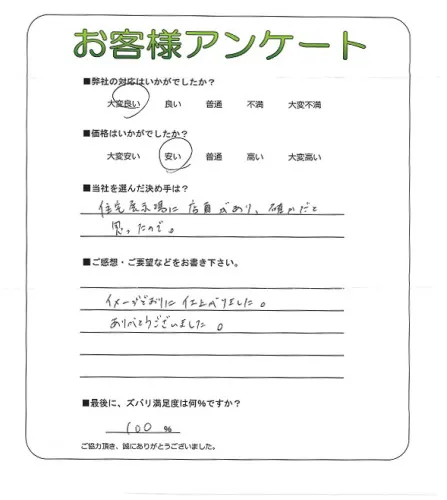 お客様アンケート
■弊社の対応はいかがでしたか？
大変良い 良い 普通 不満 大変不満
■価格はいかがでしたか？
大変安い 安い 普通 高い 大変高い
■当社を選んだ決め手は？
住宅展示場に店員があり、確かだと
思ったので。
■ご感想・ご要望などをお書き下さい。
イメージどおりに仕上がりました。
ありがとうございました。
■最後に、ズバリ満足度は何％ですか？
100 %
ご協力頂き、誠にありがとうございました。